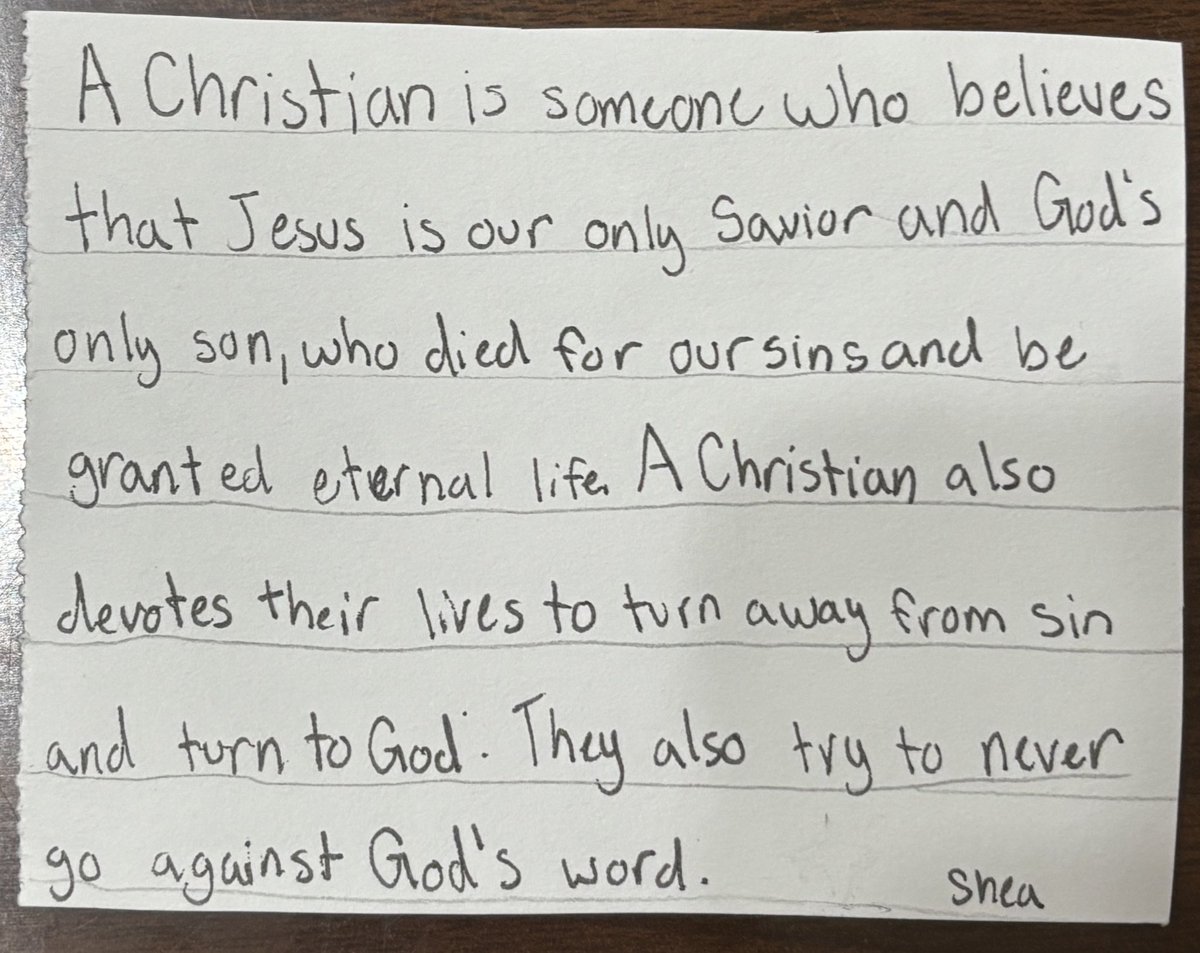 A Christian is someone who believes
that Jesus is our only Savior and God's
only son, who died for our sins and be
granted eternal life. A Christian also
devotes their lives to turn away from sin
and turn to God. They also try to never
go against God's word.
Shea